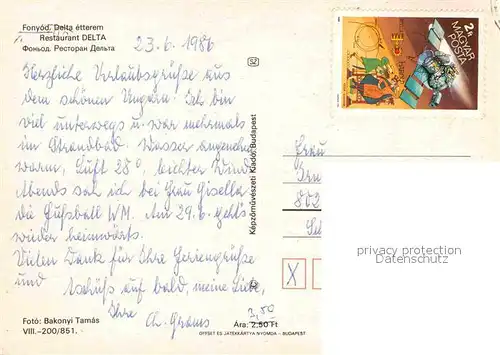 Fonyód, Delta étterem
Restaurant DELTA
Фоньод. Ресторан Дельта
23.6.1986
Herzliche Urlaubsgrüße aus
dem schönen Ungarn. Ich bin
viel unterwegs u. war mehrmals
im Strandbad. Wasser angenehm
warm, Luft 28°, leichter Wind.
Abends sah ich bei Frau Gisella
die Fußball WM. Am 29.6. geht's
wieder heimwärts.
Vielen Dank für Ihre Feriengrüße
und tschüß auf bald, meine Liebe,
Ihre
Ch. Grams
Fotó: Bakonyi Tamás
VIII.-200/851.
3,50
Ára: 2,50 Ft
OFFSET ÉS JÁTÉKKÁRTYA NYOMDA - BUDAPEST
Képzőművészeti Kiadó, Budapest
2 Ft
MAGYAR
POSTA
Frau
802
privacy protection